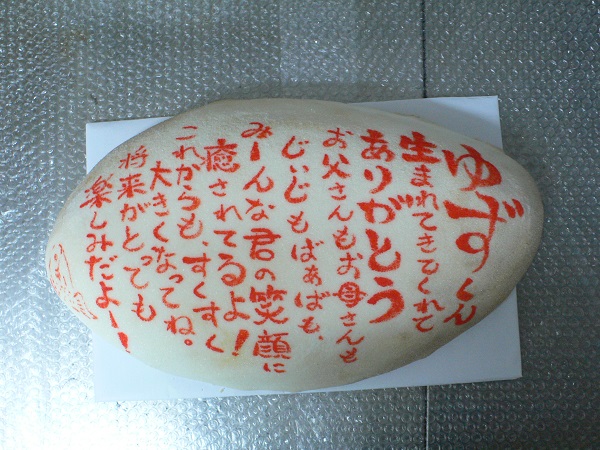 ゆずくん
生まれてきてくれて
ありがとう
お父さんもお母さんも
じぃじもばぁばも、
みーんな君の笑顔に
癒されてるよ!
これからも、すくすく
大きくなってね。
将来がとっても
楽しみだよー!